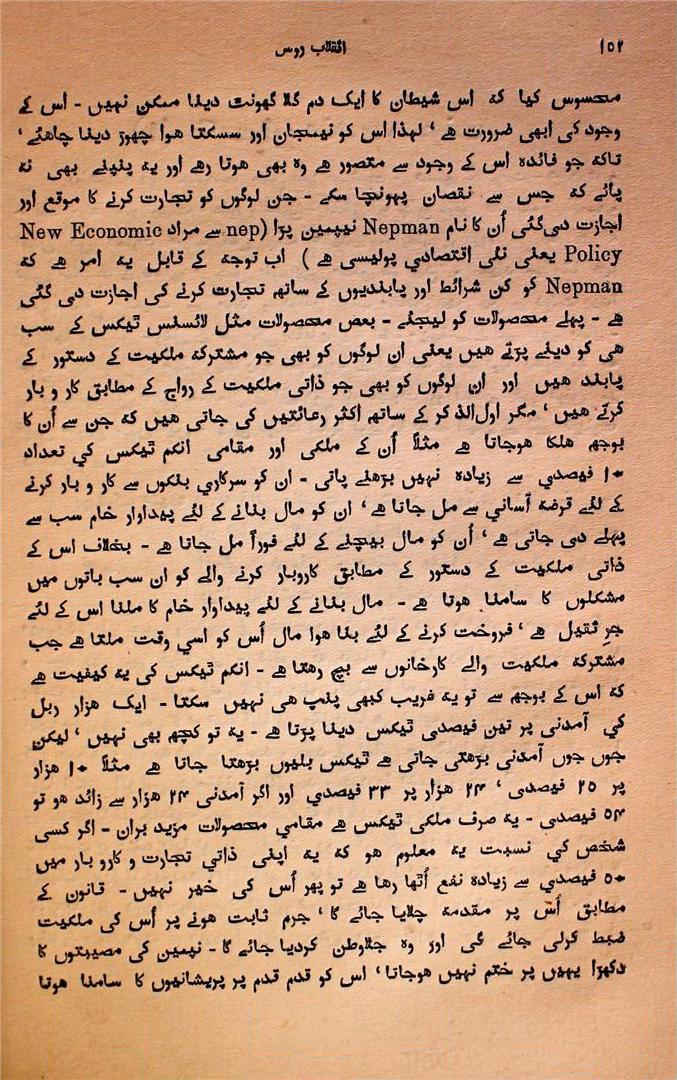 ۱۵۲
انقلاب روس
محسوس کیا کہ اس شیطان کا ایک دم گلا گھونت دینا ممکن نہیں - اس کے
وجود کی ابھی ضرورت ہے ' لہذا اس کو نیمجان اور سسکتا ہوا چھوڑ دینا چاھئے '
تاکہ جو فائدہ اس کے وجود سے متصور ہے وہ بھی ہوتا رہے اور یہ پنپنے بھی نہ
پائے کہ جس سے نقصان پہونچا سکے - جن لوگوں کو تجارت کرنے کا موقع اور
اجازت دی گئی اُن کا نام Nepman نیپمین پڑا (nep سے مراد New Economic
Policy یعنی نئی اقتصادي پولیسی ہے ) اب توجہ کے قابل یہ امر ہے کہ
Nepman کو کن شرائط اور پابندیوں کے ساتھ تجارت کرنے کی اجازت دی گئی
ہے - پہلے محصولات کو لیجئے - بعض محصولات مثل لائسنس ٹیکس کے سب
ھی کو دینے پڑتے ھیں یعنی ان لوگوں کو بھی جو مشترکہ ملکیت کے دستور کے
پابند ھیں اور ان لوگوں کو بھی جو ذاتی ملکیت کے رواج کے مطابق کار و بار
کرتے ھیں ' مگر اول الذکر کے ساتھ اکثر رعائتیں کی جاتی ھیں کہ جن سے اُن کا
بوجھ ھلکا ھوجاتا ہے مثلاً اُن کے ملکی اور مقامی انکم ٹیکس کي تعداد
۱۰ فیصدي سے زیادہ نہیں بڑھنے پاتی - ان کو سرکاري بنکوں سے کار و بار کرنے
کے لئے قرضہ آسانی سے مل جاتا ہے ' ان کو مال بنانے کے لئے پیداوار خام سب سے
پہلے دی جاتی ہے ' اُن کو مال بیچنے کے لئے فوراً مل جاتا ہے - بخلاف اس کے
ذاتی ملکیت کے دستور کے مطابق کاروبار کرنے والے کو ان سب باتوں میں
مشکلوں کا سامنا ہوتا ہے - مال بنانے کے لئے پیداوار خام کا ملنا اس کے لئے
جرِ ثقیل ہے ' فروخت کرنے کے لئے بنا ھوا مال اُس کو اسي وقت ملتا ہے جب
مشترکہ ملکیت والے کارخانوں سے بچ رھتا ہے - انکم ٹیکس کی یہ کیفیت ہے
کہ اس کے بوجھ سے تو یہ غریب کبھی پنپ ھی نہیں سکتا - ایک ہزار ربل
کي آمدنی پر تین فیصدی ٹیکس دینا پڑتا ہے - یہ تو کچھ بھی نہیں ' لیکن
جوں جوں آمدنی بڑھتی جاتی ہے ٹیکس بلیوں بڑھتا جاتا ہے مثلاً ۱۰ ہزار
پر ۲۵ فیصدی ' ۲۴ ہزار پر ۳۳ فیصدي اور اگر آمدنی ۲۴ ہزار سے زائد ھو تو
۵۴ فیصدی - یہ صرف ملکی ٹیکس ہے مقامي محصولات مزید بران - اگر کسی
شخص کي نسبت یہ معلوم ھو کہ یہ اپنی ذاتي تجارت و کارو بار میں
۵۰ فیصدي سے زیادہ نفع اُٹھا رھا ہے تو پھر اُس کی خیر نہیں - قانون کے
مطابق اُس پر مقدمہ چلایا جائے گا ' جرم ثابت ھونے پر اُس کی ملکیت
ضبط کرلی جائے گی اور وہ جلاوطن کردیا جائے گا - نیپمین کی مصیبتوں کا
دکھڑا یہیں پر ختم نہیں ھوجاتا ' اس کو قدم قدم پر پریشانیوں کا سامنا ھوتا